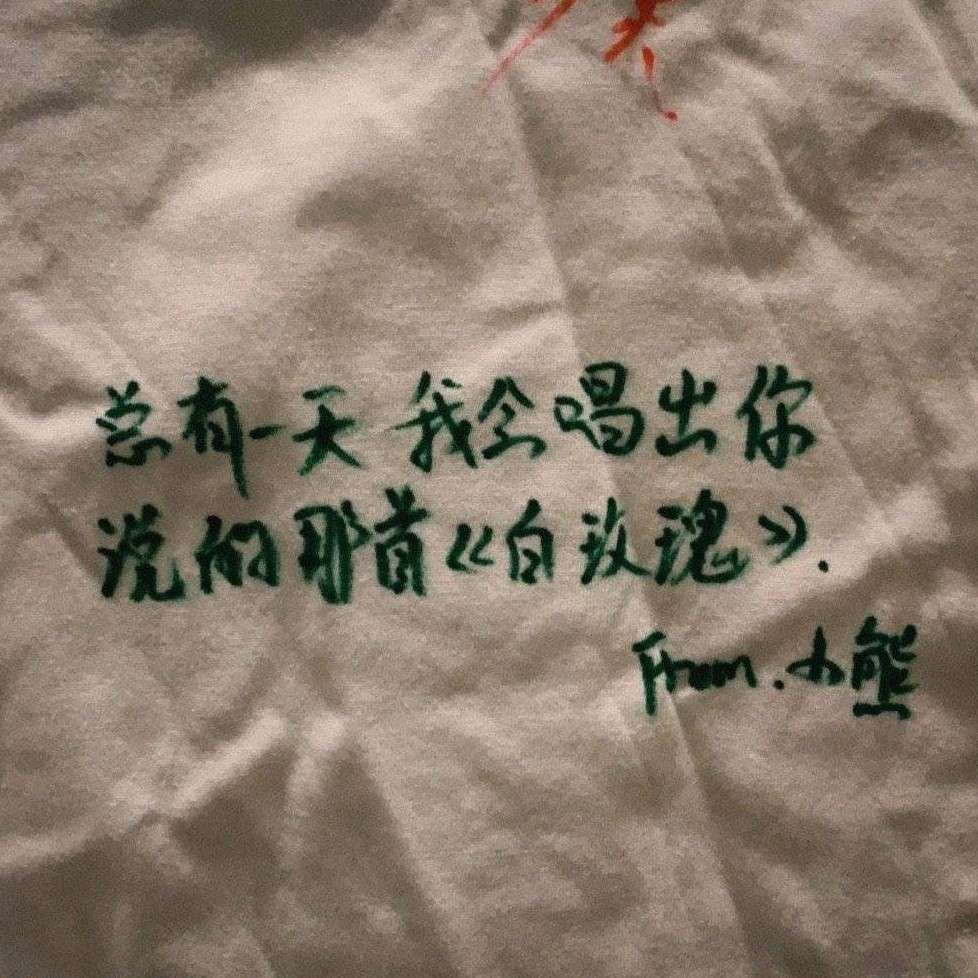 总有一天 我会唱出你
说的那首《白玫瑰》.
From.小熊